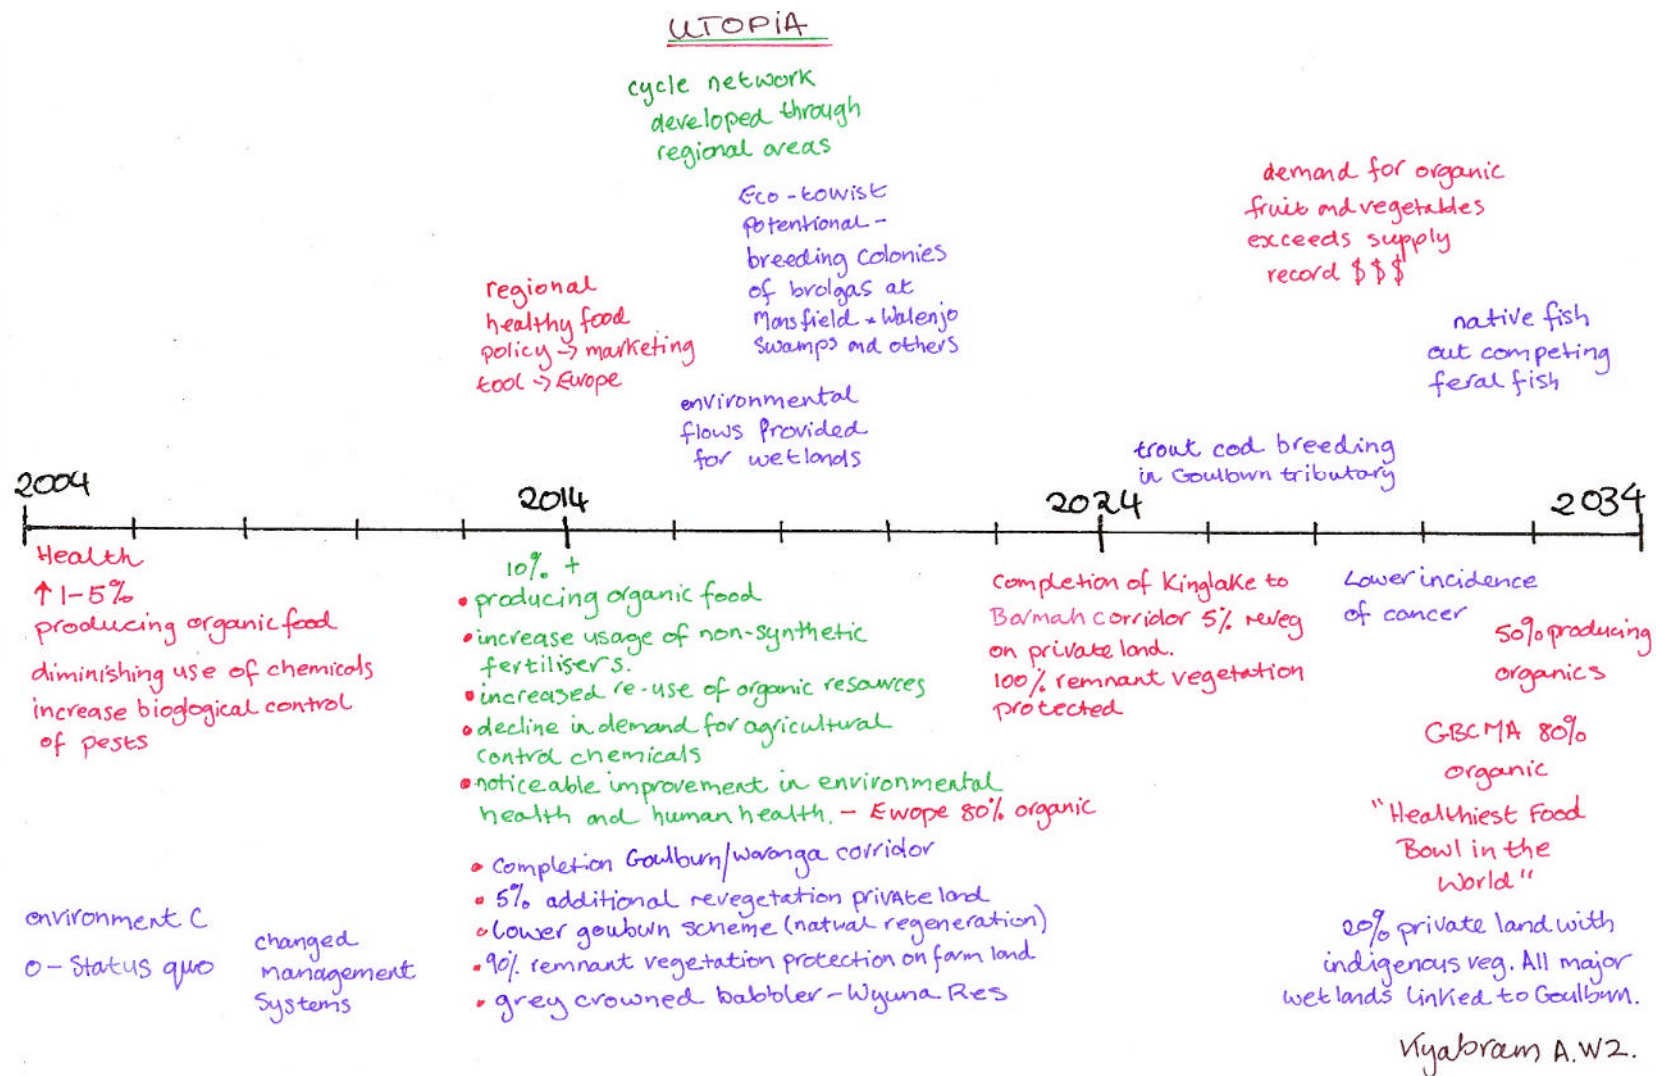 UTOPIA
cycle network
developed through
regional areas
Eco-towist
Potentional -
breeding colonies
of brolgas at
Mansfield + Walenjo
Swamps and others
regional
healthy food
policy → marketing
tool → Europe
environmental
flows Provided
for wetlands
demand for organic
fruit and vegetables
exceeds supply
record $$$
native fish
out competing
feral fish
trout cod breeding
in Goulburn tributary
2004
2014
2024
2034
Health
↑ 1-5%
producing organic food
diminishing use of chemicals
increase bioglogical control
of pests
environment C
0 - Status quo
changed
management
Systems
10% +
• producing organic food
• increase usage of non-synthetic
fertilisers.
• increased re-use of organic resources
• decline in demand for agricultural
control chemicals
• noticeable improvement in environmental
health and human health. - Europe 80% organic
• Completion Goulburn/Waranga corridor
• 5% additional revegetation private land
• Lower goulburn scheme (natural regeneration)
• 90% remnant vegetation protection on farm land
• grey crowned babbler - Wyuna Res
Completion of Kinglake to
Barmah corridor 5% reveg
on private land.
100% remnant vegetation
protected
Lower incidence
of cancer
50% producing
organics
GBCMA 80%
organic
"Healthiest Food
Bowl in the
World"
20% private land with
indigenous veg. All major
wetlands linked to Goulburn.
Kyabram A.W2.